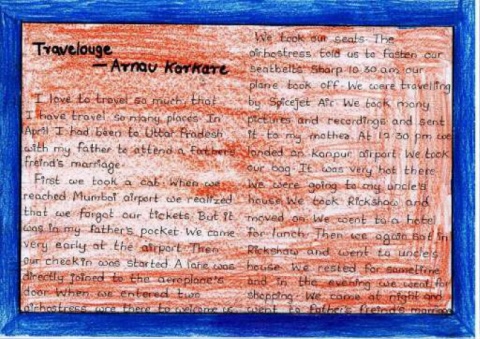 Travelouge
— Arnav Korkare
I love to travel so much that
I have travel so many places. In
April I had been to Uttar Pradesh
with my father to attend a father's
freind's marriage.
First we took a cab. When we
reached Mumbai airport we realized
that we forgot our tickets. But it
was in my father's pocket. We came
very early at the airport. Then
our checkin was started. A lane was
directly joined to the aeroplane's
door. When we entered two
airhostress were there to welcome us.
We took our seats. The
airhostress told us to fasten our
seatbelts. Sharp 10.30 am our
plane took off. We were travelling
by Spicejet Air. We took many
pictures and recordings and sent
it to my mother. At 12.30 pm we
landed on Kanpur airport. We took
our bag. It was very hot there.
We were going to my uncle's
house. We took Rickshaw and
moved on. We went to a hotel
for lunch. Then we again sat in
Rickshaw and went to uncle's
house. We rested for sometime
and in the evening we went for
shopping. We came at night and
went to father's freind's marriage